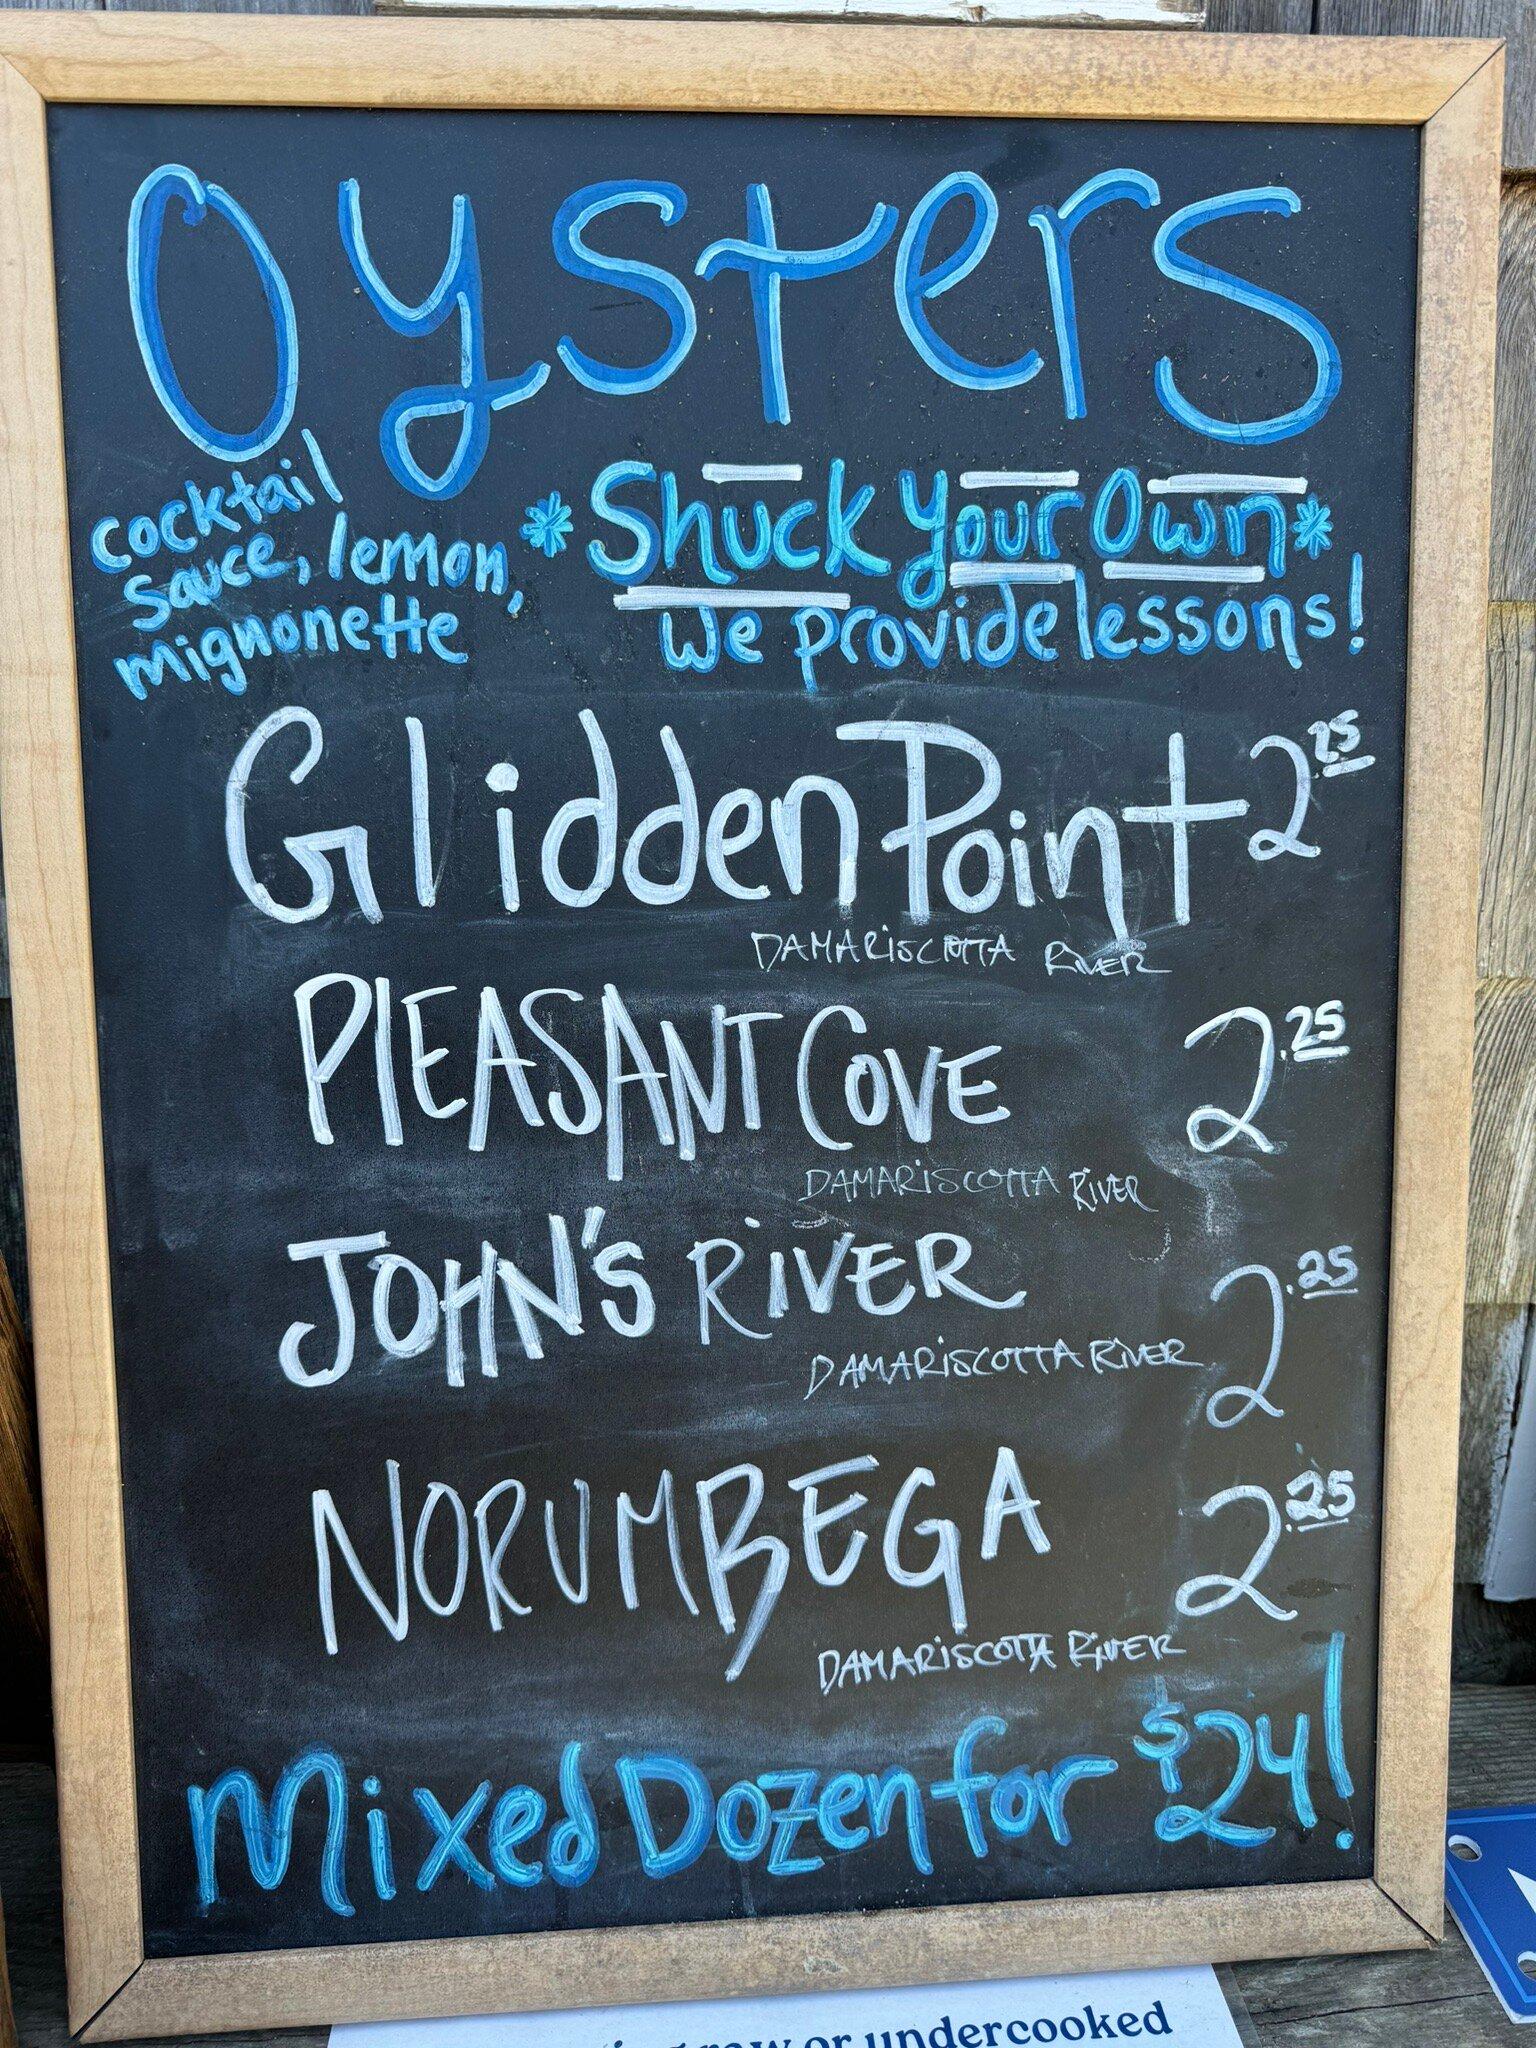 Oysters
cocktail
sauce, lemon,
mignonette
*Shuck Your Own*
We provide lessons!
Glidden Point 2.25
DAMARISCOTTA RIVER
PLEASANT COVE 2.25
DAMARISCOTTA RIVER
JOHN'S RIVER 2.25
DAMARISCOTTA RIVER
NORUMBEGA 2.25
DAMARISCOTTA RIVER
Mixed Dozen for $24!
raw or undercooked